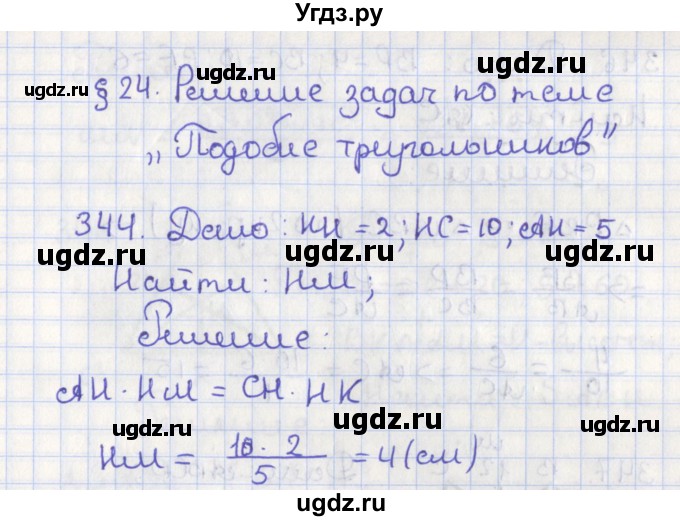 Угдз.ру
§ 24. Решение задач по теме
„Подобие треугольников"
344. Дано: КН = 2; НС = 10; АН = 5
Найти: НМ;
Решение:
АН · НМ = СН · НК
НМ = 10 · 2 / 5 = 4 (см)
ugdz.ru
ugdz.ru
ugdz.ru
ugdz.ru
ugdz.ru
ugdz.ru
ugdz.ru
ugdz.ru
ugdz.ru
ugdz.ru
ugdz.ru
ugdz.ru